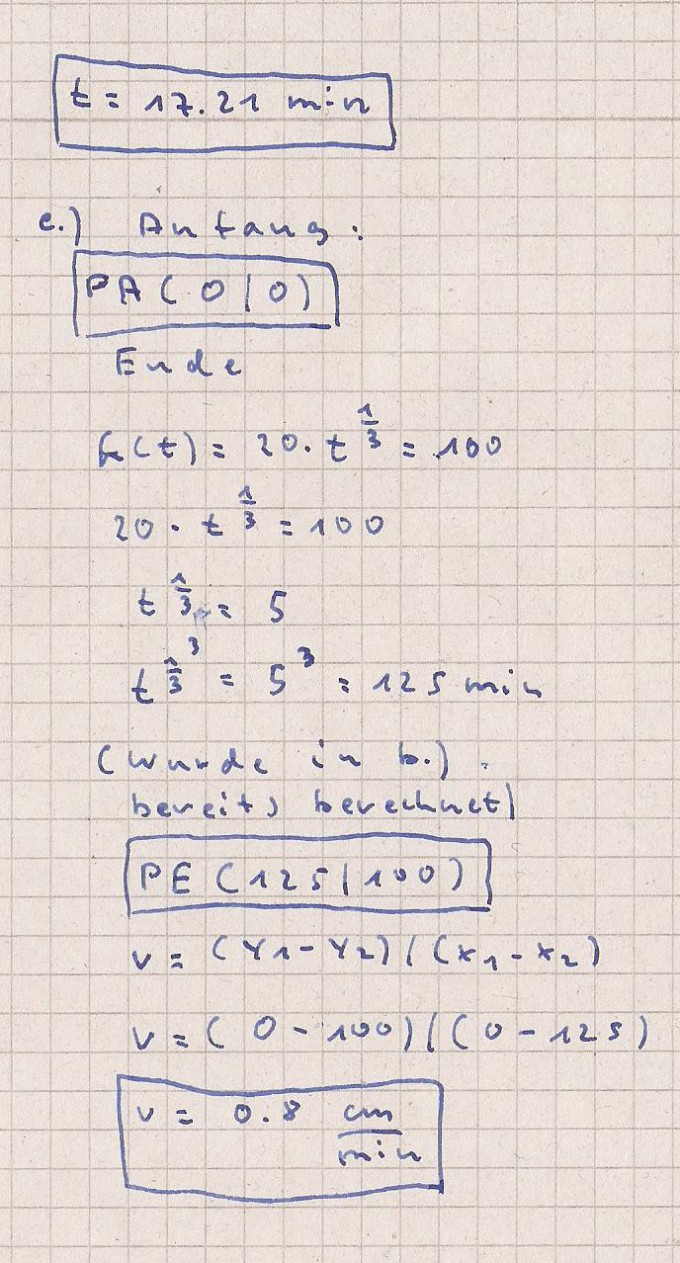 t = 17.21 min
e.) Anfang:
PA ( 0 | 0 )
Ende
h(t) = 20 · t^(1/3) = 100
20 · t^(1/3) = 100
t^(1/3) = 5
t^(1/3)^3 = 5^3 = 125 min
(wurde in b.)
bereits berechnet)
PE ( 125 | 100 )
v = (Y1 - Y2) / (x1 - x2)
v = ( 0 - 100) / ( 0 - 125 )
v = 0.8 cm/min